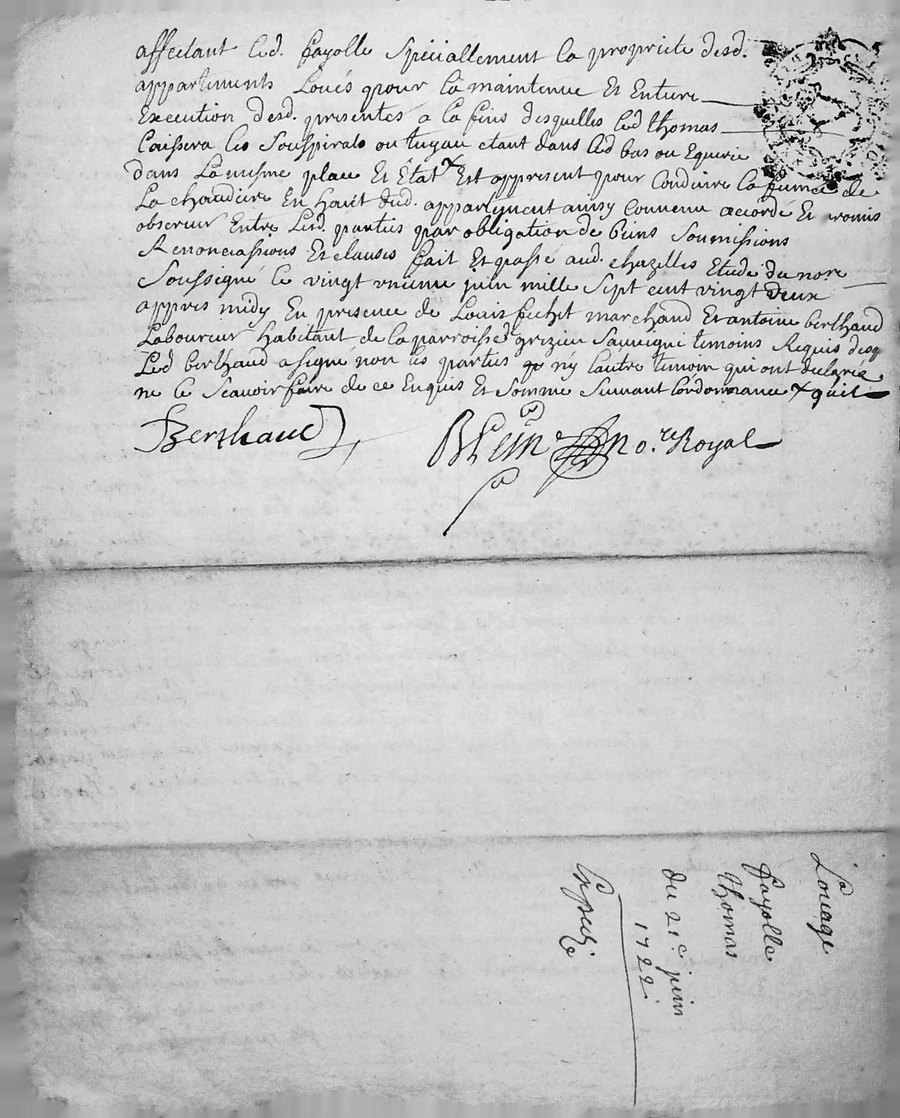 affectant led. fayolle speciallement la propriete desd.
appartements Loués pour la maintenue Et Entiere
Execution desd. presentes a la fins desquelles led thomas
Laissera les Souspirals ou tuyau etant dans led bas ou Equerie
dans La mesme place Et Etat x Est appresent pour Conduire la fumée de
La chaudiere En haut dud. appartement aussy Convenu accordé Et promis
observer Entre Lesd. parties par obligation de biens Soumissions
Renonciassions Et clauses fait Et passé aud. chazelles Etude du nore
Soussigné Le vingt unieme juin mille Sept cent vingt deux
appres midy En presence de Louis fichet marchand Et antoine berthaud
Laboureur habitant de la parroisse grizieu Sauvigni temoins Requis desq
Led berthaud a signé non les parties ny lautre temoin qui ont declaré
ne le Scavoir faire de ce Enquis Et Sommé Suivant Lordonnance x quil
Berthaud
no.re Royal
Louage
fayolle
thomas
du 21e juin
1722
Exped.